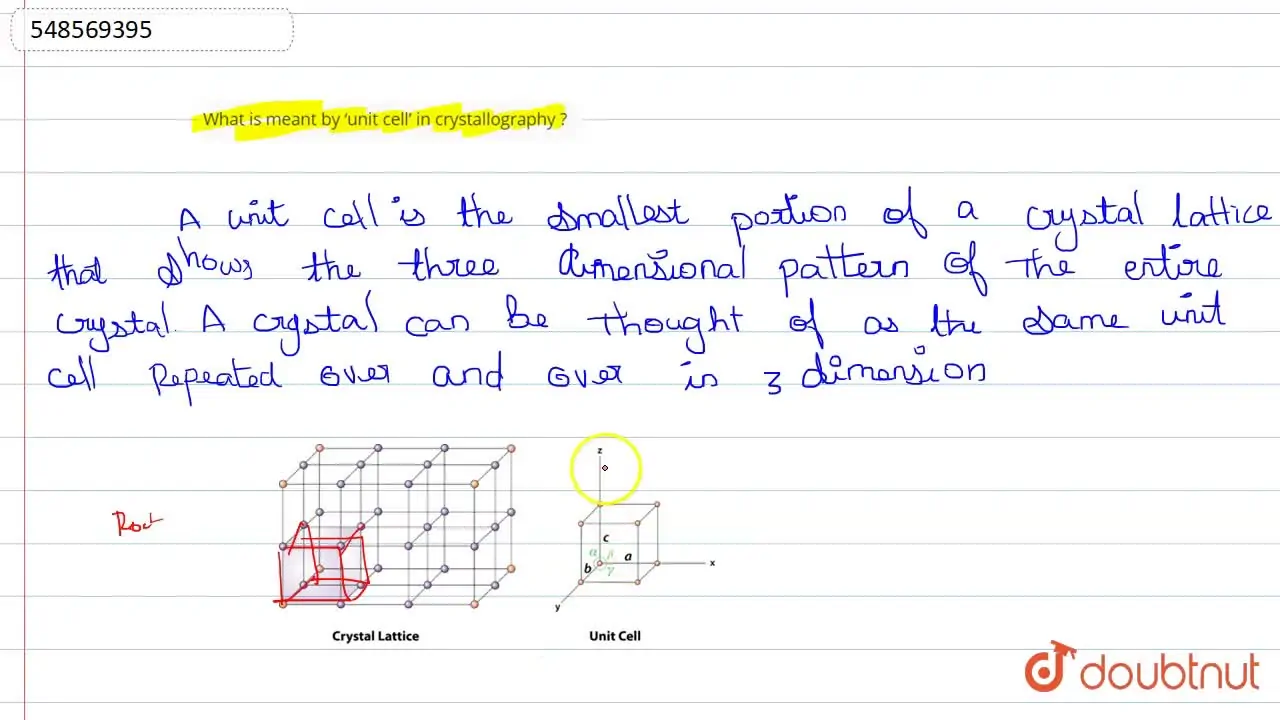 548569395
What is meant by ‘unit cell’ in crystallography ?
A unit cell is the smallest portion of a crystal lattice
that shows the three dimensional pattern of the entire
crystal. A crystal can be thought of as the same unit
cell repeated over and over in 3 dimension
z
c
α β
a
b γ
x
y
Crystal Lattice
Unit Cell
doubtnut